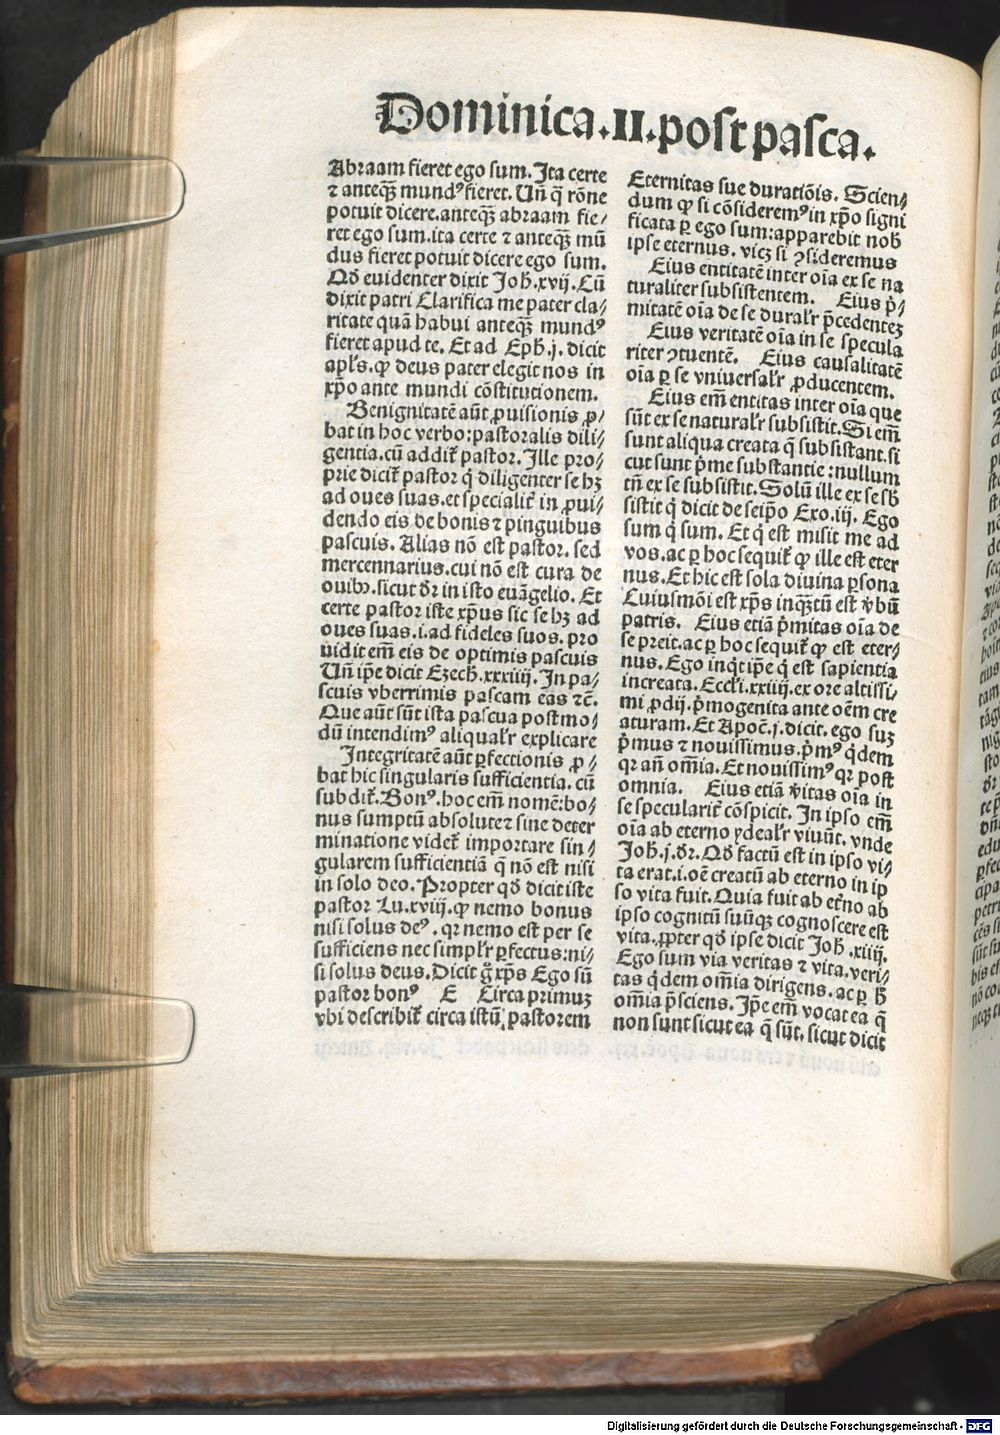 Dominica.II.post pasca.
Abraam fieret ego sum. Ita certe
⁊ anteqꝫ mundꝰ fieret. Uñ q̇ rōne
potuit dicere. anteqꝫ abraam fie⸗
ret ego sum. ita certe ⁊ anteqꝫ mū
dus fieret potuit dicere ego sum.
Qđ euidenter dixit Joh̄. xvij. Cū
dixit patri Clarifica me pater cla⸗
ritate quā habui anteqꝫ mundꝰ
fieret apud te. Et ad Eph̄. j. dicit
apl̄s. ꝙ deus pater elegit nos in
xp̄o ante mundi cōstitutionem.
Benignitatē aūt ꝓuisionis ꝓ⸗
bat in hoc verbo: pastoralis dili⸗
gentia. cū addit̄ pastor. Ille pro⸗
prie dicit̄ pastor q̇ diligenter se hꝫ
ad oues suas. et specialit̄ in ꝓui⸗
dendo eis de bonis ⁊ pinguibus
pascuis. Alias nō est pastor. sed
mercennarius. cui nō est cura de
ouibꝰ. sicut dr̄ in isto euāgelio. Et
certe pastor iste xp̄us sic se hꝫ ad
oues suas. i. ad fideles suos. pro
uidit em̄ eis de optimis pascuis
Uñ ip̄e dicit Ezech̄. xxxiiij. In pa⸗
scuis vberrimis pascam eas ⁊c̄.
Que aūt sūt ista pascua postmo⸗
dū intendimꝰ aliqual̄r explicare
Integritatē aūt ꝑfectionis ꝓ⸗
bat hic singularis sufficientia. cū
subdit̄. Bonꝰ. hoc em̄ nomē: bo⸗
nus sumptū absolute ⁊ sine deter
minatione videt̄ importare sin⸗
gularem sufficientiā q̄ nō est nisi
in solo deo. Propter qđ dicit iste
pastor Lu. xviij. ꝙ nemo bonus
nisi solus deꝰ. qꝛ nemo est per se
sufficiens nec simpl̄r ꝑfectus: ni⸗
si solus deus. Dicit g̊ xp̄s Ego sū
pastor bonꝰ E Circa primuꝫ
vbi describit̄ circa istū pastorem
Eternitas sue duratiōis. Scien⸗
dum ꝙ si cōsideremꝰ in xp̄o signi
ficata ꝑ ego sum: apparebit nob̄
ipse eternus. vicꝫ si ꝯsideremus
Eius entitatē inter oīa ex se na
turaliter subsistentem. Eius p̄i⸗
mitatē oīa de se dural̄r p̄cedenteꝫ
Eius veritatē oīa in se specula
riter ꝯtuentē. Eius causalitatē
oīa ꝑ se vniuersal̄r ꝓducentem.
Eius em̄ entitas inter oīa que
sūt ex se natural̄r subsistit. Si em̄
sunt aliqua creata q̄ subsistant. si
cut sunt p̄me substantie: nullum
tñ ex se subsistit. Solū ille ex se sb̄
sistit q̇ dicit de seip̄o Exo. iij. Ego
sum q̇ sum. Et q̇ est misit me ad
vos. ac ꝑ hoc sequit̄ ꝙ ille est eter
nus. Et hic est sola diuina ꝑsona
Cuiusmōi est xp̄s inqꝫtū est v̄bū
patris. Eius etiā p̄mitas oīa de
se preit. ac ꝑ hoc sequit̄ ꝙ est eter⸗
nus. Ego inq̇t ip̄e q̇ est sapientia
increata. Eccl̄i. xxiiij. ex ore altissi⸗
mi ꝓdij. p̄mogenita ante oēm cre
aturam. Et Apoc̄. j. dicit. ego suꝫ
p̄mus ⁊ nouissimus. p̄mꝰ q̇dem
qꝛ añ om̄ia. Et nouissimꝰ qꝛ post
omnia. Eius etiā v̄itas oīa in
se specularit̄ cōspicit. In ipso em̄
oīa ab eterno ydeal̄r viuūt. vnde
Joh̄. j. dr̄. Qđ factū est in ipso vi⸗
ta erat. i. oē creatū ab eterno in ip
so vita fuit. Quia fuit ab et̄no ab
ipso cognitū suūqꝫ cognoscere est
vita. ꝓpter qđ ipse dicit Joh̄. xiiij.
Ego sum via veritas ⁊ vita. veri⸗
tas q̇dem om̄ia dirigens. ac ꝑ h̄
om̄ia p̄sciens. Ip̄e em̄ vocat ea q̄
non sunt sicut ea q̄ sūt. sicut dicit
Digitalisierung gefördert durch die Deutsche Forschungsgemeinschaft - DFG